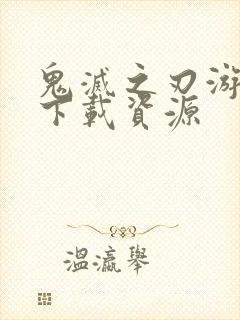 鬼滅之刃游
下載資源
溫瀛舉